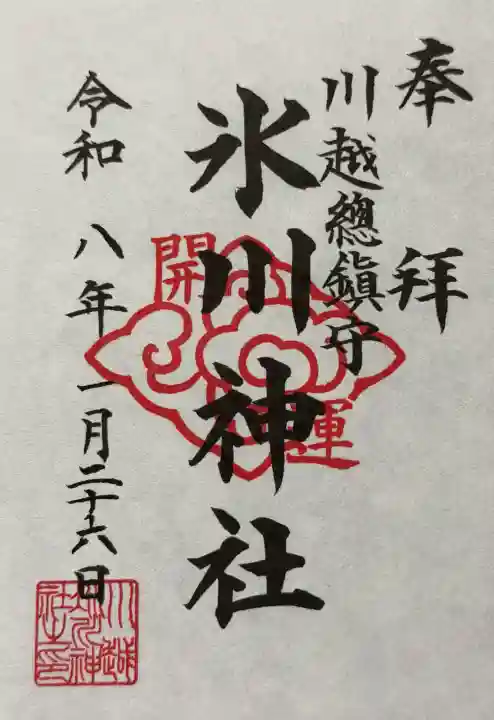 奉拝
川越總鎮守
氷川神社
開運
令和八年一月二十六日
川越氷川神社之印